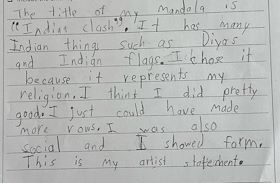 The title of my mandala is
"Indian clash". It has many
Indian things such as Diyas
and Indian flags. I chose it
because it represents my
religion. I think I did pretty
good. I just could have made
more rows. I was also
social and I showed form.
This is my artist statement.